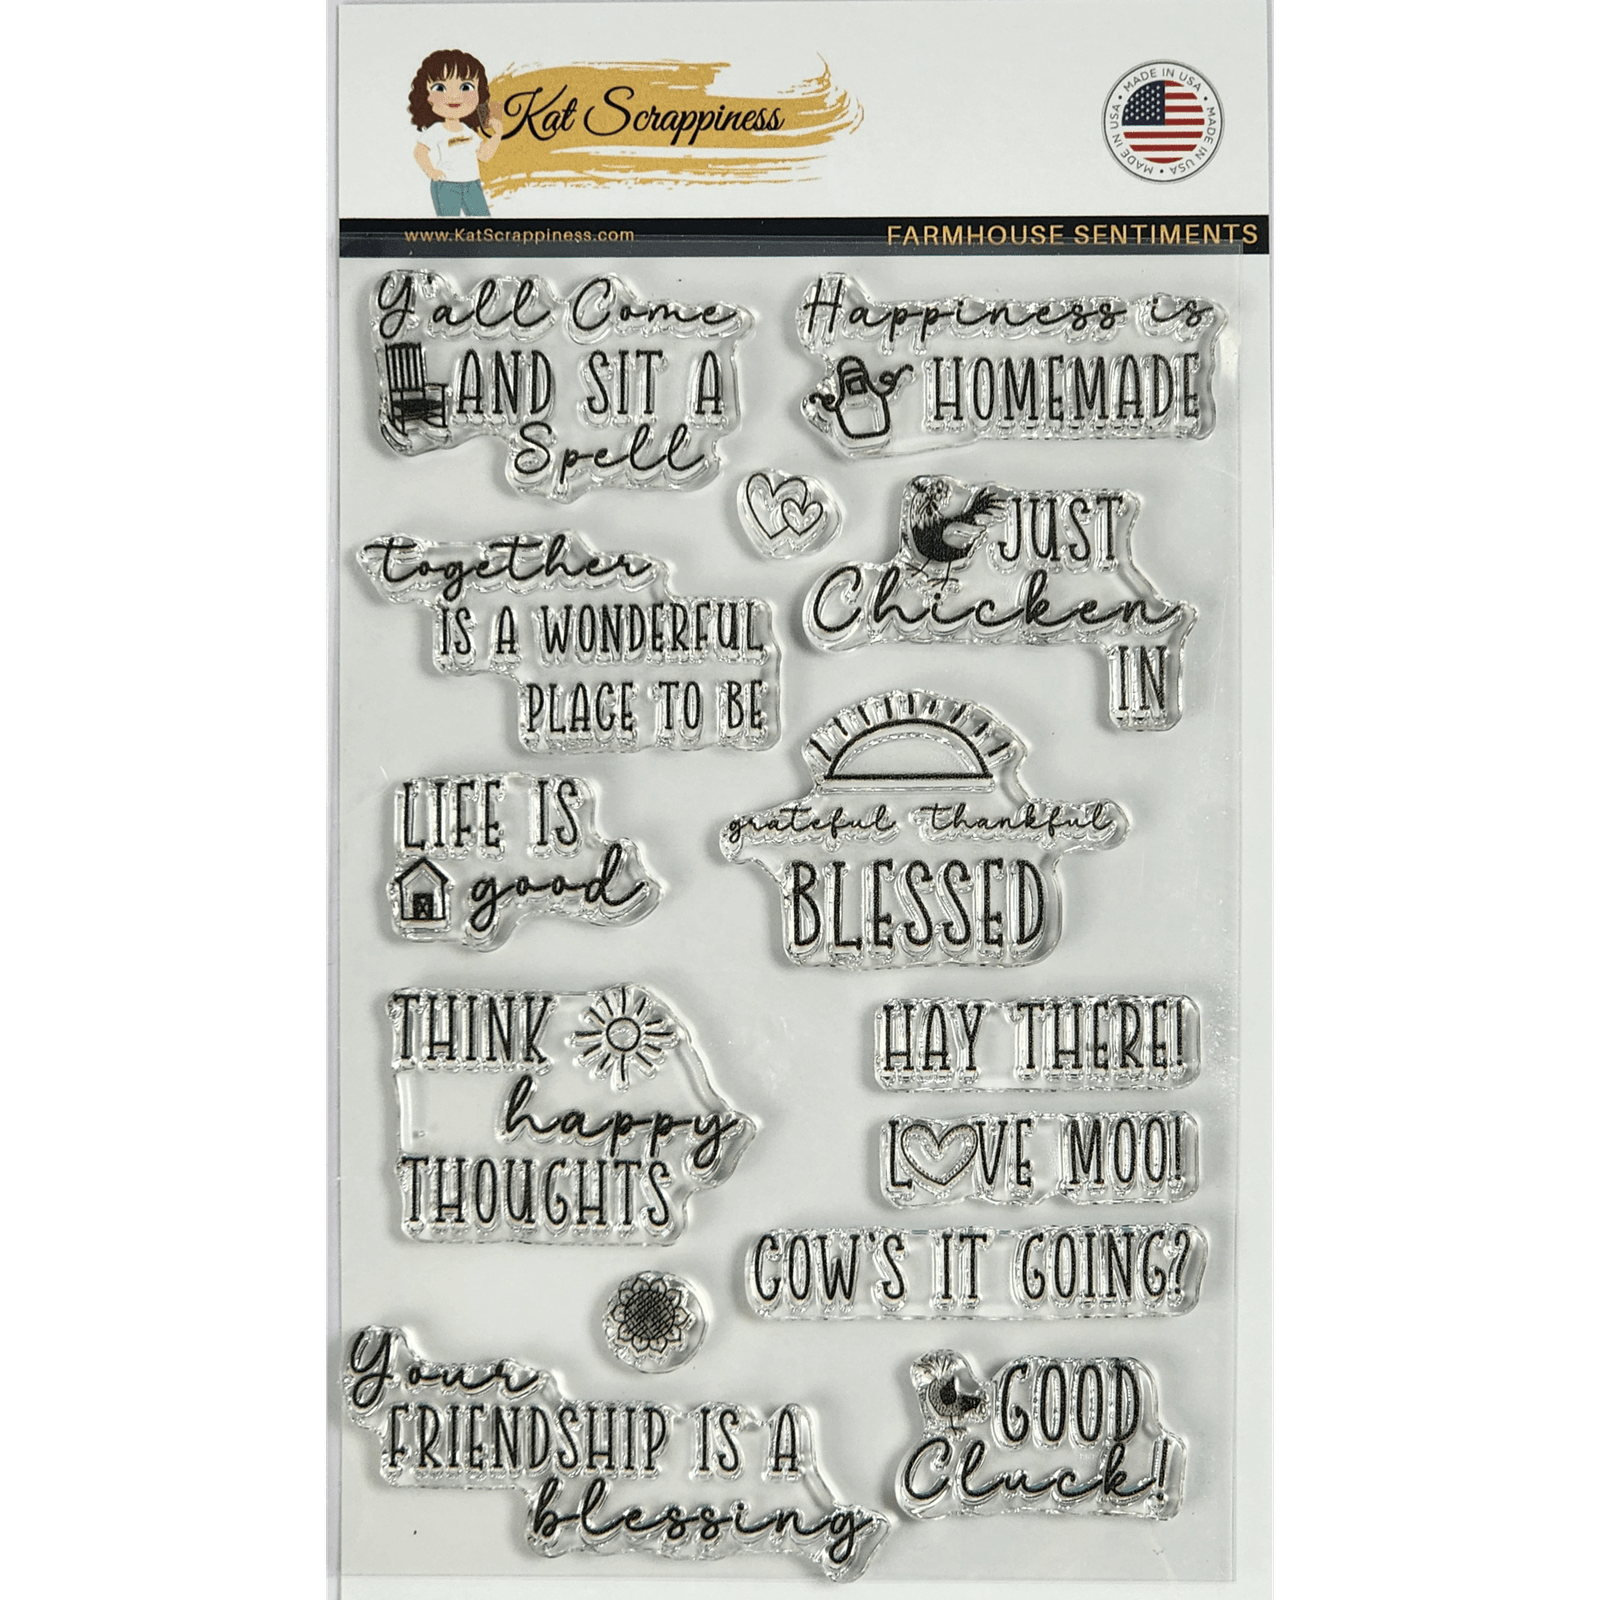 Kat Scrappiness
MADE IN USA • MADE IN USA • MADE IN USA •
www.KatScrappiness.com
FARMHOUSE SENTIMENTS
Y'all Come
AND SIT A
Spell
Happiness is
HOMEMADE
JUST
Chicken
IN
together
IS A WONDERFUL
PLACE TO BE
grateful thankful
BLESSED
LIFE IS
good
THINK
happy
THOUGHTS
HAY THERE!
LOVE MOO!
COW'S IT GOING?
Your
FRIENDSHIP IS A
blessing
GOOD
Cluck!